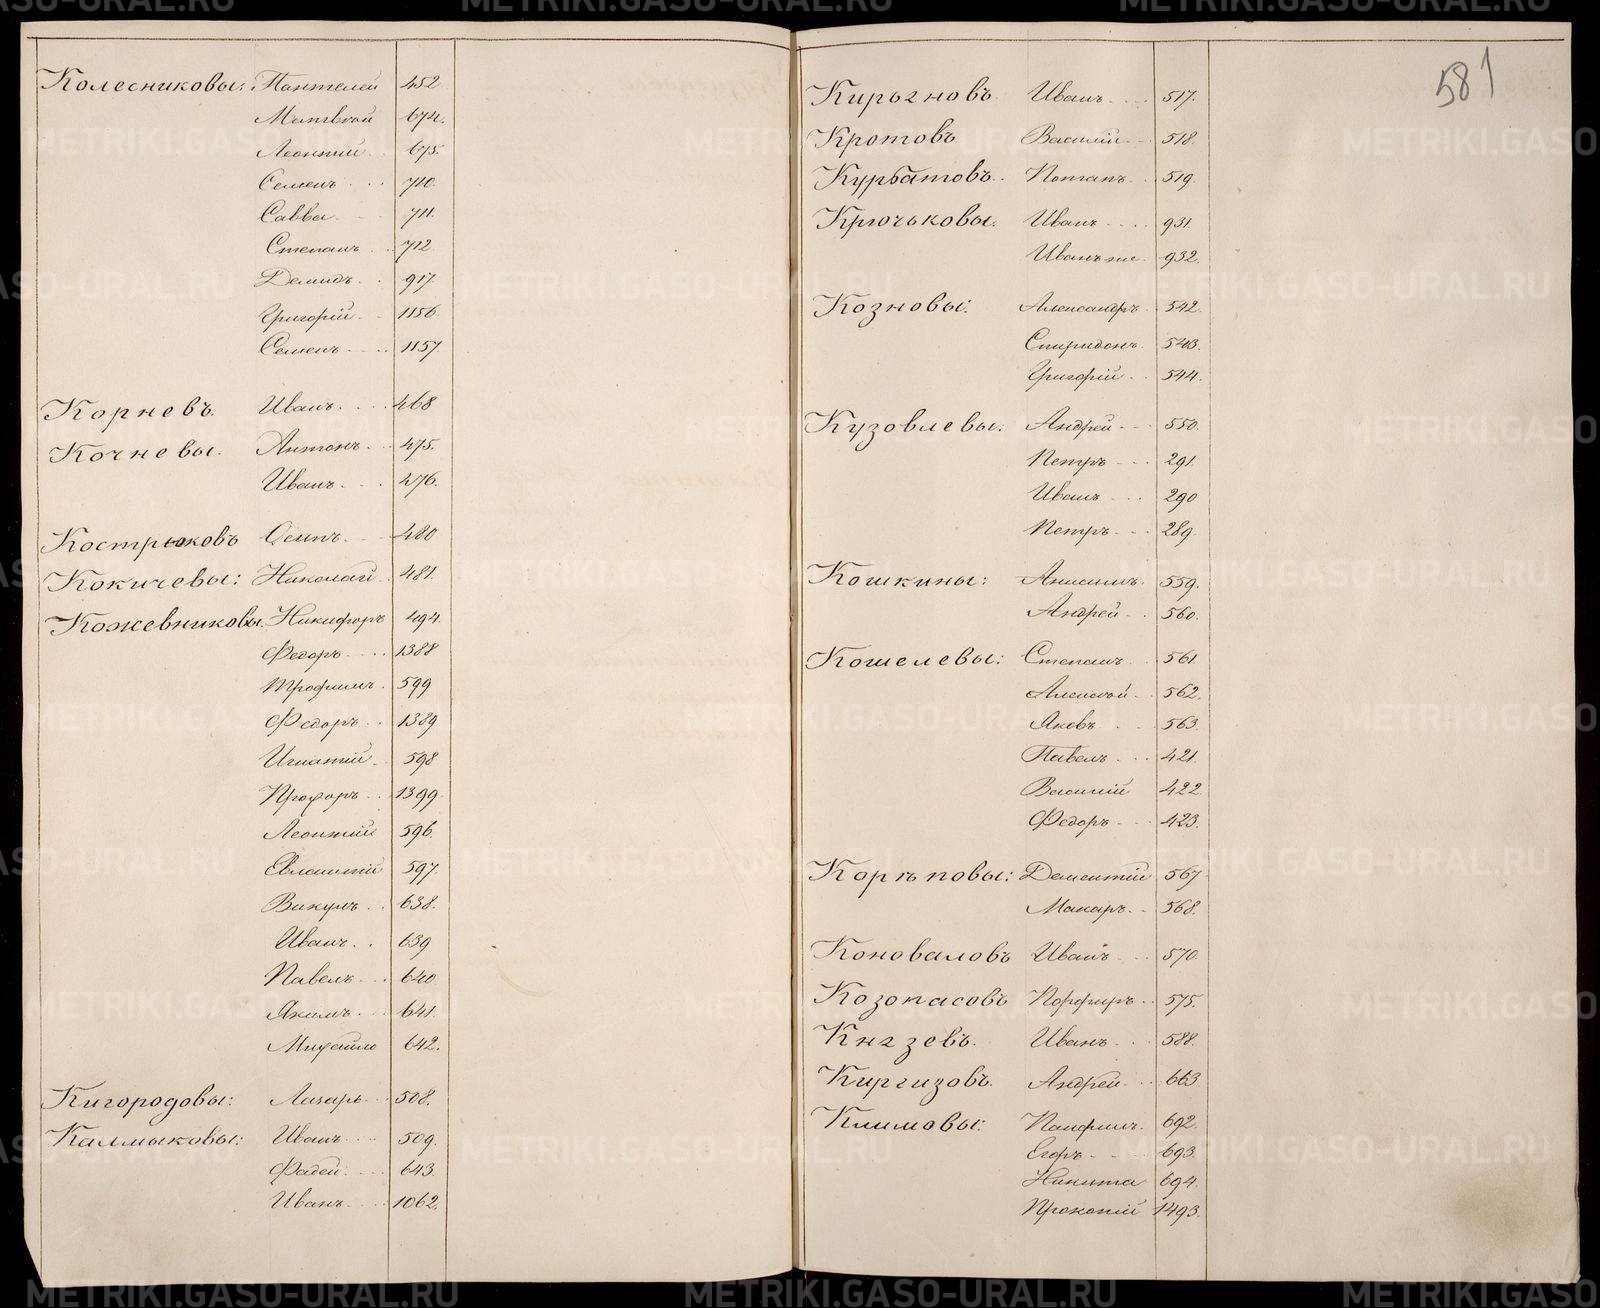 Колесниковы: Пантелей 452
Матвѣй 674.
Леонтій 675.
Семенъ 710.
Савва 711.
Степанъ 712
Демидъ 917.
Григорій 1156.
Семенъ 1157
Корневъ. Иванъ 468
Кочневы. Антонъ 475.
Иванъ 476.
Кострюковъ Осипъ 480
Кокичевы: Николай 481.
Кожевниковы. Никифоръ 494.
Федоръ 1388
Трофимъ 599
Федоръ 1389
Игнатій 598
Прохоръ 1399
Леонтій 596.
Евлампій 597.
Викулъ 638.
Иванъ 639
Павелъ 640
Якимъ 641.
Михайло 642.
Кигородовы: Лазарь 508.
Калмыковы: Иванъ 509.
Фадей 643
Иванъ 1062.
581
Кирьяновъ Иванъ 517.
Кротовъ Василій 518.
Курбатовъ Потапъ 519.
Крючьковы: Иванъ 931.
Иванъ же 932.
Козновы: Александръ 542.
Спиридонъ 543.
Григорій 544.
Кузовлевы: Андрей 550.
Петръ 291.
Иванъ 290
Петръ 289.
Кошкины: Анисимъ 559.
Андрей 560.
Кошелевы: Степанъ 561
Алексѣй 562.
Яковъ 563.
Павелъ 421.
Василій 422
Федоръ 423.
Дементій 567
Макаръ 568.
Коноваловъ Иванъ 570
Козопасовъ Порфиръ 575.
Князевъ. Иванъ 588.
Киргизовъ. Андрей 663
Климовы: Памфилъ 692.
Егоръ 693.
Никита 694.
Прокопій 1493.
METRIKI.GASO-URAL.RU